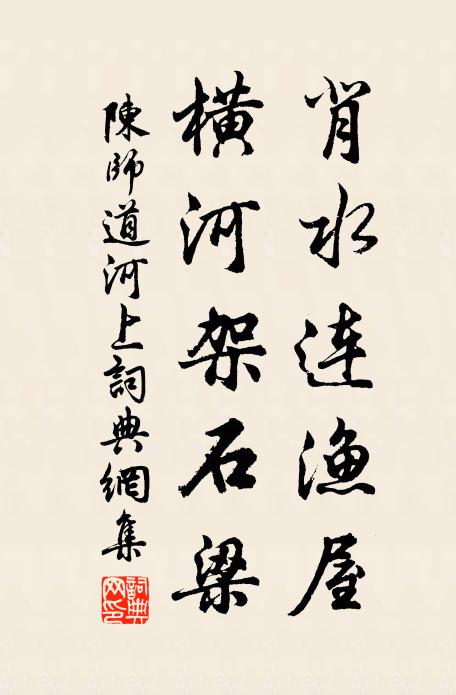 背水连渔屋
橫河架石梁
陳師道河上詞典網集
詞典网印